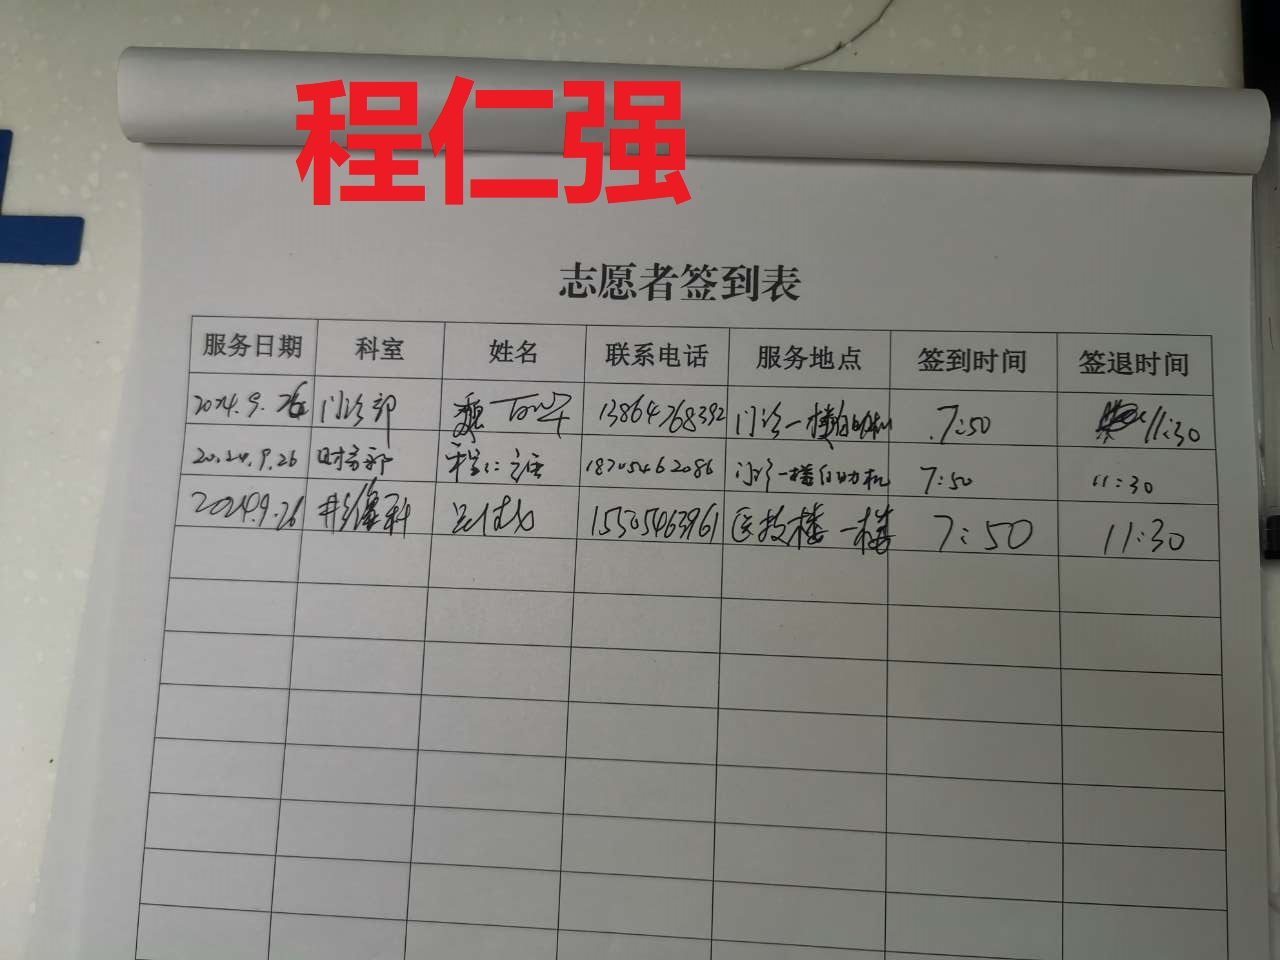 程仁强
志愿者签到表
服务日期 科室 姓名 联系电话 服务地点 签到时间 签退时间
2024.9.26 门诊部 13864768392 门诊一楼自助机 7:50 11:30
2024.9.26 财务部 程仁强 18705462086 门诊一楼自助机 7:50 11:30
2024.9.26 15505463961 医技楼一楼 7:50 11:30